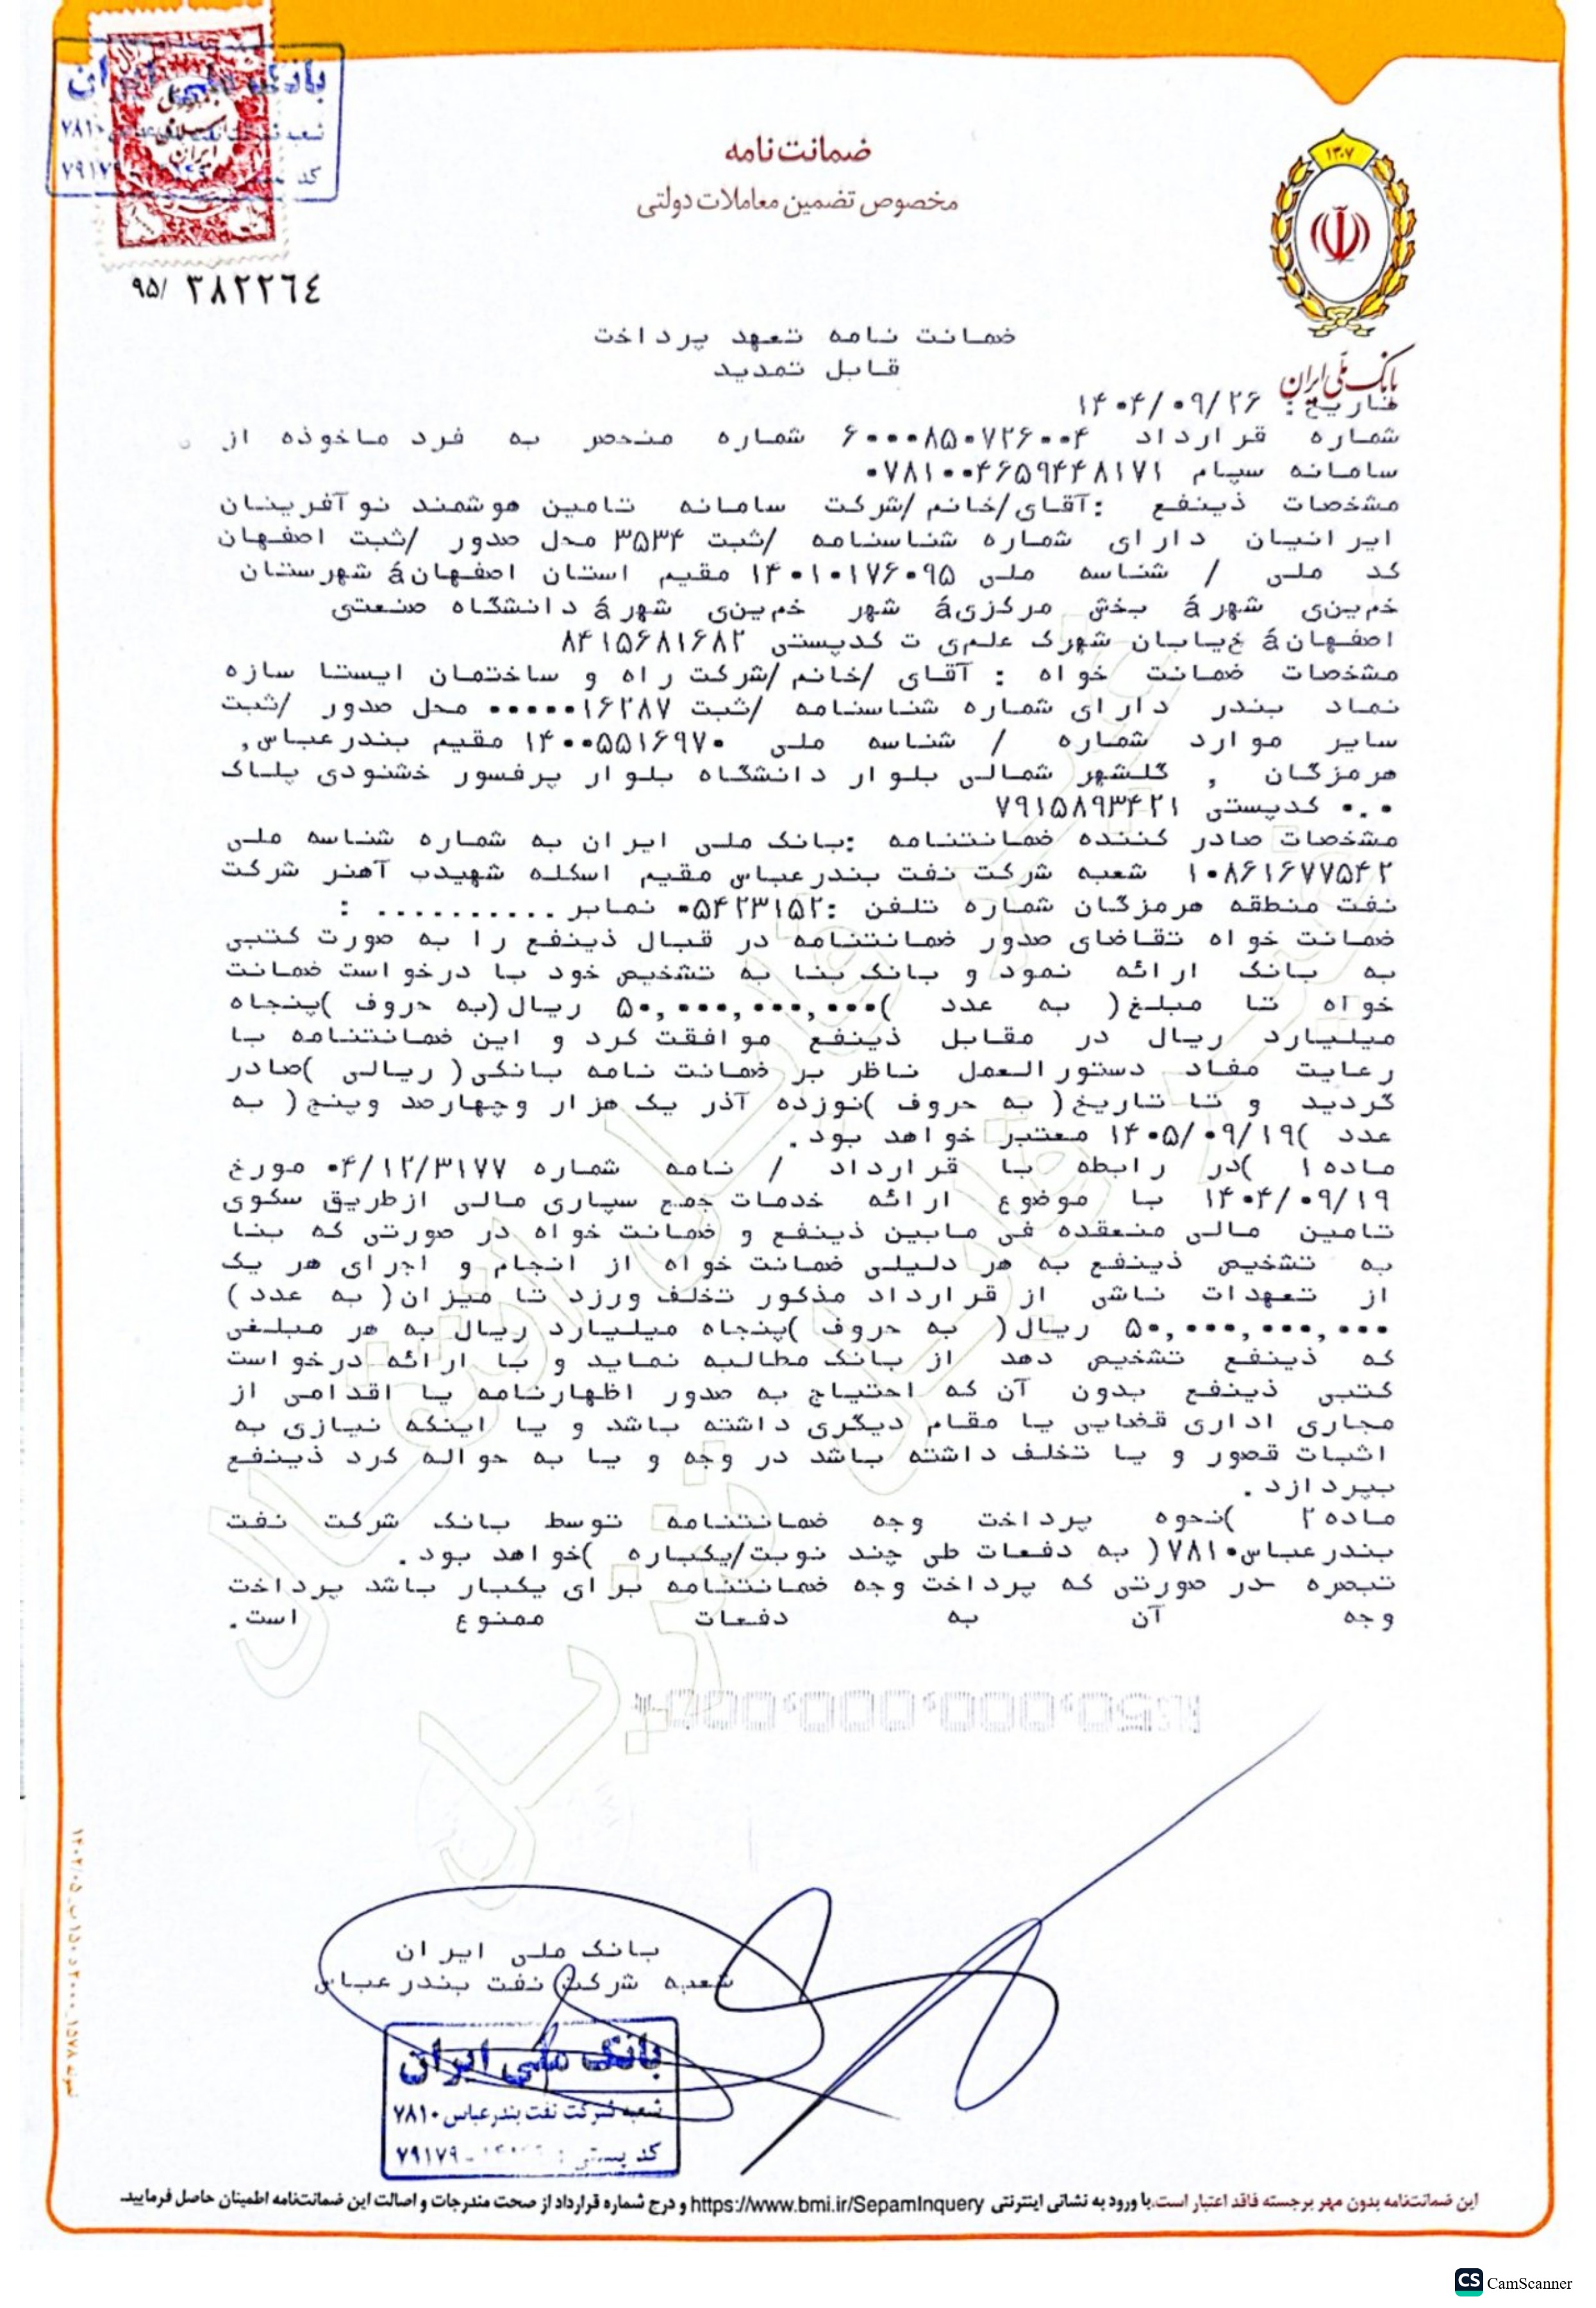 ضمانت‌نامه
مخصوص تضمین معاملات دولتی
۱۳۰۷
بانک ملی ایران
۹۵/ ۳۸۲۲٦٤
ضمانت نامه تعهد پرداخت
قابل تمدید
تاریخ: ۱۴۰۴/۰۹/۲۶
شماره قرارداد ۶۰۰۰۸۵۰۷۲۶۰۰۴ شماره منحصر به فرد ماخوذه از
سامانه سپام ۰۷۸۱۰۰۴۶۵۹۴۴۸۱۷۱
مشخصات ذینفع :آقای/خانم/شرکت سامانه تامین هوشمند نوآفرینان
ایرانیان دارای شماره شناسنامه /ثبت ۳۵۳۴ محل صدور /ثبت اصفهان
کد ملی / شناسه ملی ۱۴۰۱۰۱۷۶۰۹۵ مقیم استان اصفهانá شهرستان
خم‌ین‌ی شهرá بخش مرکزیá شهر خم‌ین‌ی شهرá دانشگاه صنعتی
اصفهانá خ‌یابان شهرک علم‌ی ت کدپستی ۸۴۱۵۶۸۱۶۸۲
مشخصات ضمانت خواه : آقای /خانم /شرکت راه و ساختمان ایستا سازه
نماد بندر دارای شماره شناسنامه /ثبت ۰۰۰۰۰۱۶۲۸۷ محل صدور /ثبت
سایر موارد شماره / شناسه ملی ۱۴۰۰۵۵۱۶۹۷۰ مقیم بندرعباس,
هرمزگان , گلشهر شمالی بلوار دانشگاه بلوار پرفسور خشنودی پلاک
۰.۰ کدپستی ۷۹۱۵۸۹۳۴۲۱
مشخصات صادر کننده ضمانتنامه :بانک ملی ایران به شماره شناسه ملی
۱۰۸۶۱۶۷۷۵۴۲ شعبه شرکت نفت بندرعباس مقیم اسکله شهیدب آهنر شرکت
نفت منطقه هرمزگان شماره تلفن :۰۵۴۲۳۱۵۲ نمابر .......... :
ضمانت خواه تقاضای صدور ضمانتنامه در قبال ذینفع را به صورت کتبی
به بانک ارائه نمود و بانک بنا به تشخیص خود با درخواست ضمانت
خواه تا مبلغ( به عدد )۵۰,۰۰۰,۰۰۰,۰۰۰ ریال(به حروف )پنجاه
میلیارد ریال در مقابل ذینفع موافقت کرد و این ضمانتنامه با
رعایت مفاد دستورالعمل ناظر بر ضمانت نامه بانکی( ریالی )صادر
گردید و تا تاریخ( به حروف )نوزده آذر یک هزار وچهارصد وپنج( به
عدد )۱۴۰۵/۰۹/۱۹ معتبر خواهد بود.
ماده۱ )در رابطه با قرارداد / نامه شماره ۰۴/۱۲/۳۱۷۷ مورخ
۱۴۰۴/۰۹/۱۹ با موضوع ارائه خدمات جمع سپاری مالی ازطریق سکوی
تامین مالی منعقده فی مابین ذینفع و ضمانت خواه در صورتی که بنا
به تشخیص ذینفع به هر دلیلی ضمانت خواه از انجام و اجرای هر یک
از تعهدات ناشی از قرارداد مذکور تخلف ورزد تا میزان( به عدد)
۵۰,۰۰۰,۰۰۰,۰۰۰ ریال( به حروف )پنجاه میلیارد ریال به هر مبلغی
که ذینفع تشخیص دهد از بانک مطالبه نماید و با ارائه درخواست
کتبی ذینفع بدون آن که احتیاج به صدور اظهارنامه یا اقدامی از
مجاری اداری قضایی یا مقام دیگری داشته باشد و یا اینکه نیازی به
اثبات قصور و یا تخلف داشته باشد در وجه و یا به حواله کرد ذینفع
بپردازد.
ماده۲ )نحوه پرداخت وجه ضمانتنامه توسط بانک شرکت نفت
بندرعباس۷۸۱۰( به دفعات طی چند نوبت/یکباره )خواهد بود.
تبصره -در صورتی که پرداخت وجه ضمانتنامه برای یکبار باشد پرداخت
وجه آن به دفعات ممنوع است.
بانک ملی ایران
شعبه شرکت نفت بندرعباس
بانک ملی ایران
شعبه شرکت نفت بندرعباس ۷۸۱۰
کد پستی : ۷۹۱۷۹-
این ضمانت‌نامه بدون مهر برجسته فاقد اعتبار است. با ورود به نشانی اینترنتی https://www.bmi.ir/SepamInquery و درج شماره قرارداد از صحت مندرجات و اصالت این ضمانت‌نامه اطمینان حاصل فرمایید.
CS CamScanner